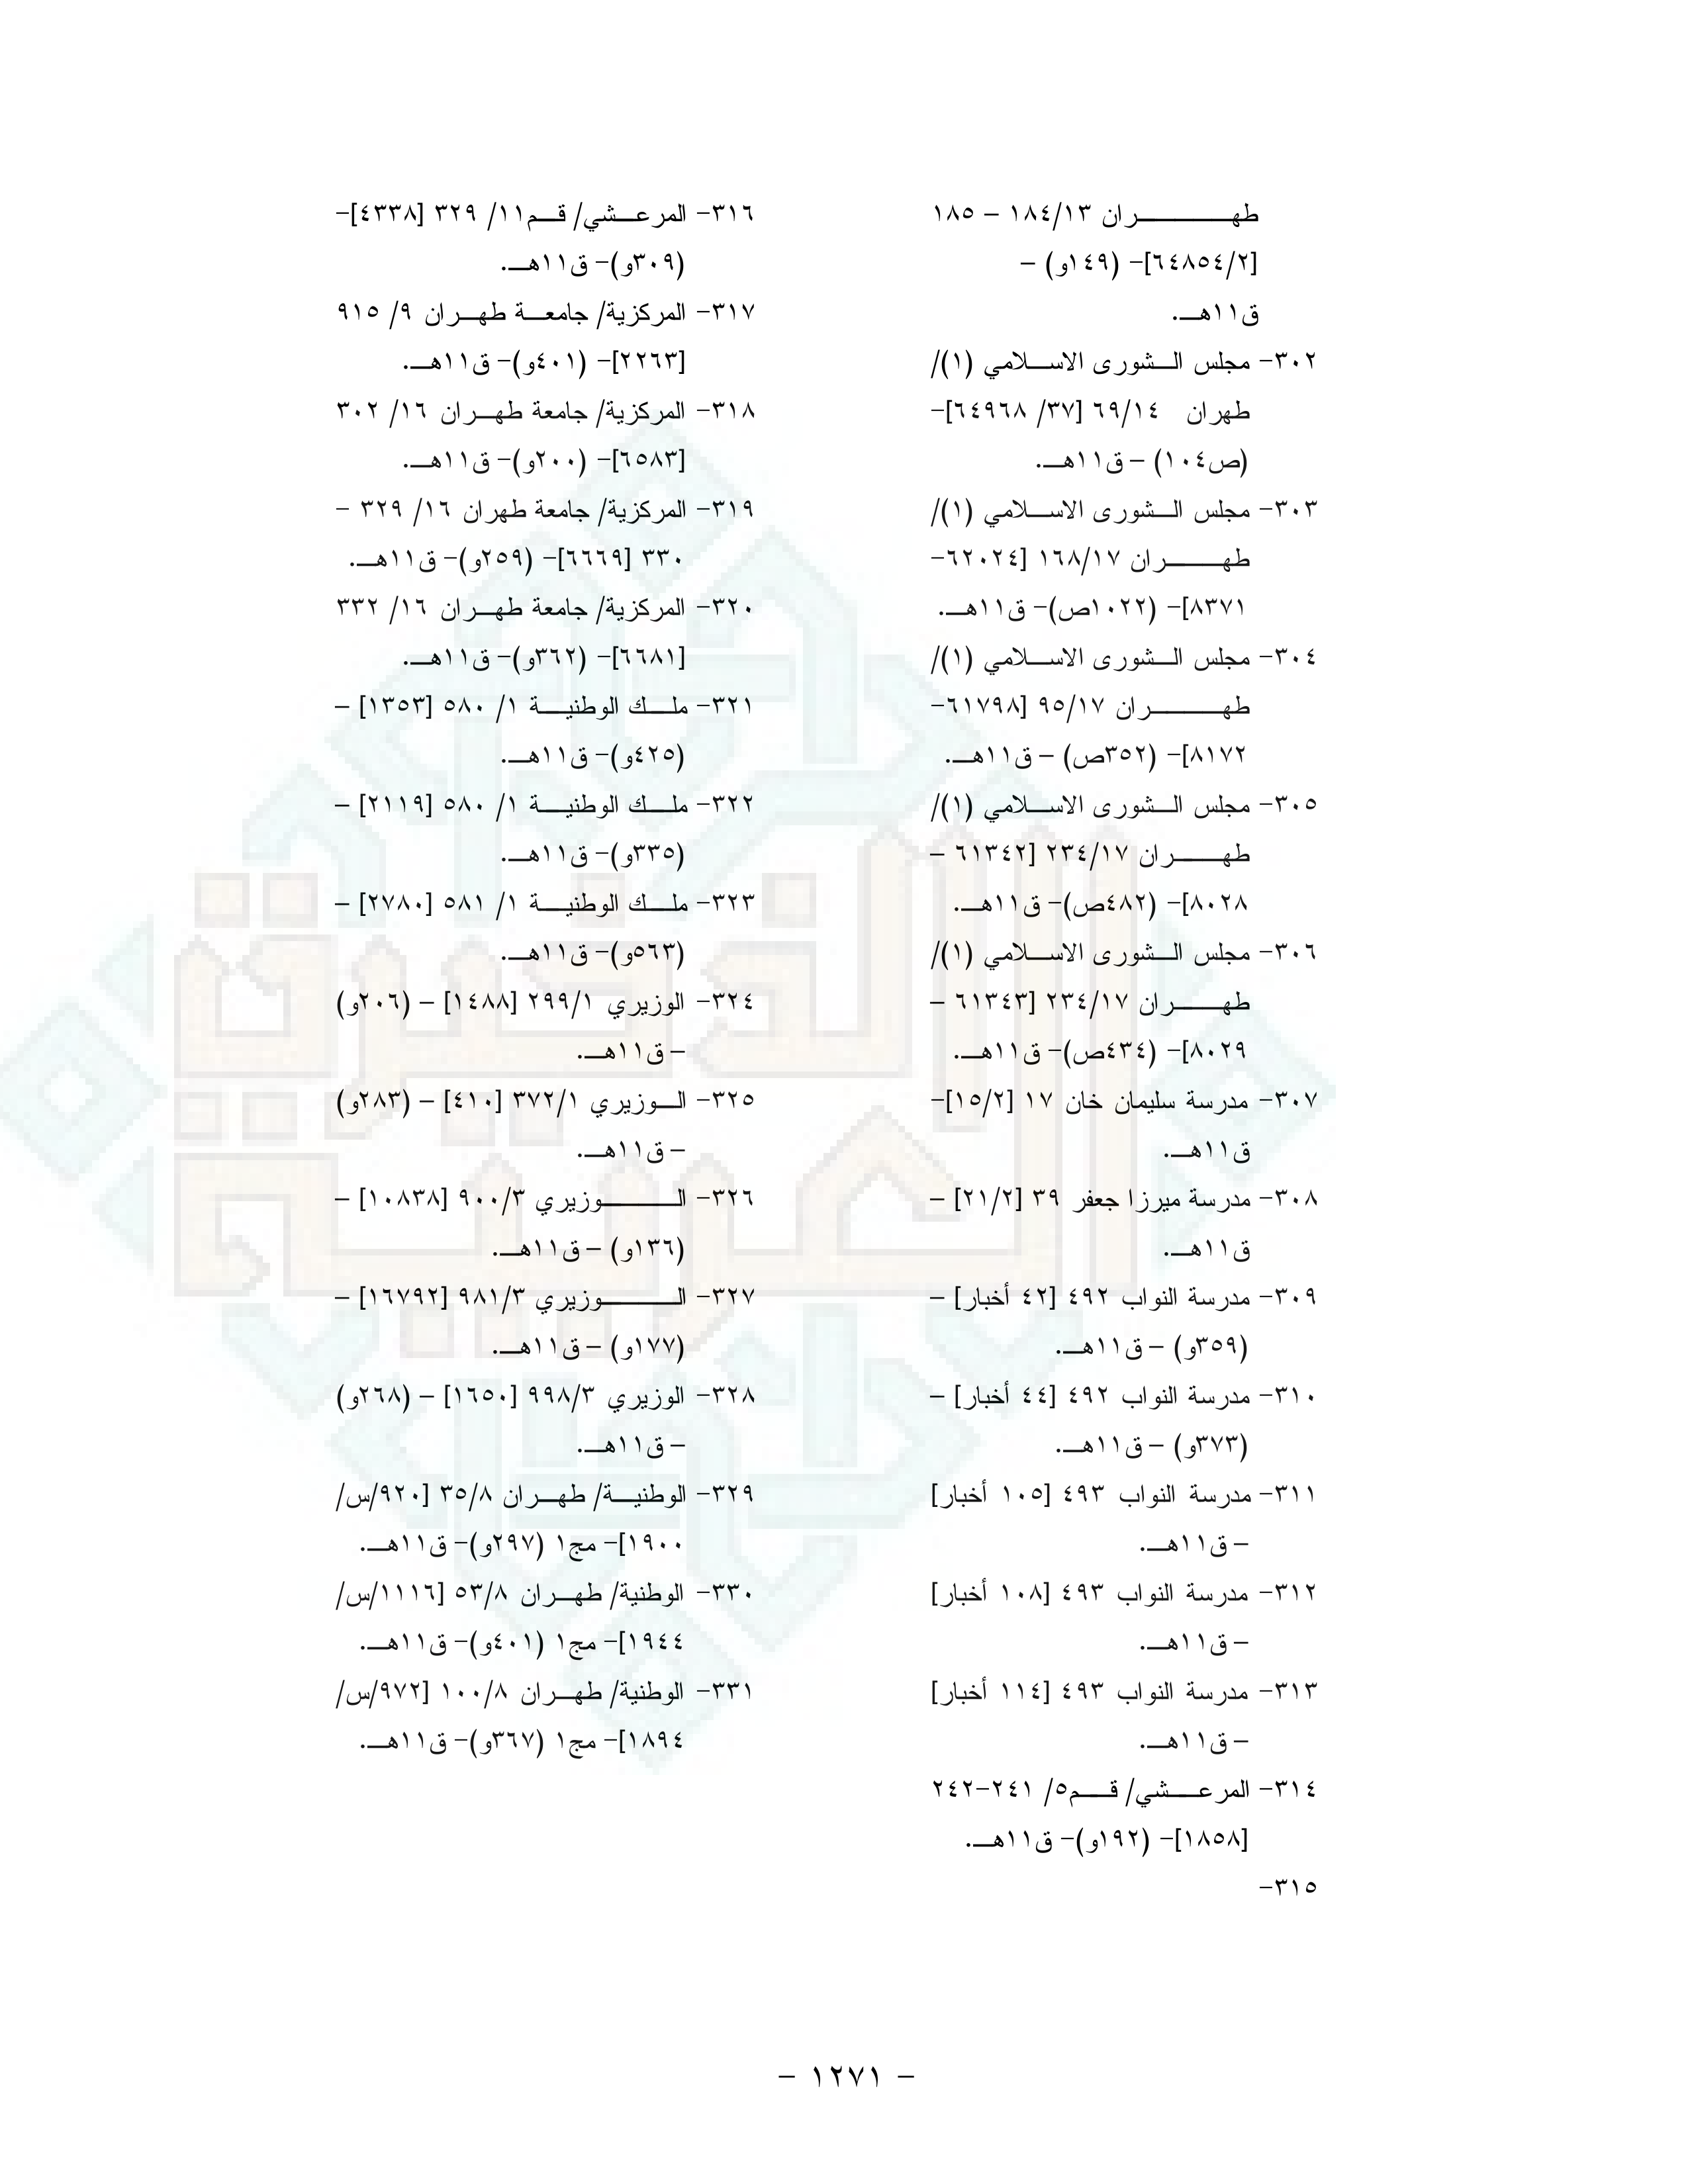 طهران ١٨٤/١٣ – ١٨٥
[٦٤٨٥٤/٢]- (١٤٩و) –
ق١١هـ.
٣٠٢- مجلس الشورى الاسلامي (١)/
طهران ٦٩/١٤ [٣٧/ ٦٤٩٦٨]-
(ص١٠٤) – ق١١هـ.
٣٠٣- مجلس الشورى الاسلامي (١)/
طهران ١٦٨/١٧ [٦٢٠٢٤-
٨٣٧١]- (١٠٢٢ص)- ق١١هـ.
٣٠٤- مجلس الشورى الاسلامي (١)/
طهران ٩٥/١٧ [٦١٧٩٨-
٨١٧٢]- (٣٥٢ص) – ق١١هـ.
٣٠٥- مجلس الشورى الاسلامي (١)/
طهران ٢٣٤/١٧ [٦١٣٤٢ –
٨٠٢٨]- (٤٨٢ص)- ق١١هـ.
٣٠٦- مجلس الشورى الاسلامي (١)/
طهران ٢٣٤/١٧ [٦١٣٤٣ –
٨٠٢٩]- (٤٣٤ص)- ق١١هـ.
٣٠٧- مدرسة سليمان خان ١٧ [١٥/٢]-
ق١١هـ.
٣٠٨- مدرسة ميرزا جعفر ٣٩ [٢١/٢] –
ق١١هـ.
٣٠٩- مدرسة النواب ٤٩٢ [٤٢ أخبار] –
(٣٥٩و) – ق١١هـ.
٣١٠- مدرسة النواب ٤٩٢ [٤٤ أخبار] –
(٣٧٣و) – ق١١هـ.
٣١١- مدرسة النواب ٤٩٣ [١٠٥ أخبار]
– ق١١هـ.
٣١٢- مدرسة النواب ٤٩٣ [١٠٨ أخبار]
– ق١١هـ.
٣١٣- مدرسة النواب ٤٩٣ [١١٤ أخبار]
– ق١١هـ.
٣١٤- المرعشي/ قم٥/ ٢٤١-٢٤٢
[١٨٥٨]- (١٩٢و)- ق١١هـ.
٣١٥-
٣١٦- المرعشي/ قم١١/ ٣٢٩ [٤٣٣٨]-
(٣٠٩و)- ق١١هـ.
٣١٧- المركزية/ جامعة طهران ٩/ ٩١٥
[٢٢٦٣]- (٤٠١و)- ق١١هـ.
٣١٨- المركزية/ جامعة طهران ١٦/ ٣٠٢
[٦٥٨٣]- (٢٠٠و)- ق١١هـ.
٣١٩- المركزية/ جامعة طهران ١٦/ ٣٢٩ -
٣٣٠ [٦٦٦٩]- (٢٥٩و)- ق١١هـ.
٣٢٠- المركزية/ جامعة طهران ١٦/ ٣٣٢
[٦٦٨١]- (٣٦٢و)- ق١١هـ.
٣٢١- ملك الوطنية ١/ ٥٨٠ [١٣٥٣] –
(٤٢٥و)- ق١١هـ.
٣٢٢- ملك الوطنية ١/ ٥٨٠ [٢١١٩] –
(٣٣٥و)- ق١١هـ.
٣٢٣- ملك الوطنية ١/ ٥٨١ [٢٧٨٠] –
(٥٦٣و)- ق١١هـ.
٣٢٤- الوزيري ٢٩٩/١ [١٤٨٨] – (٢٠٦و)
– ق١١هـ.
٣٢٥- الوزيري ٣٧٢/١ [٤١٠] – (٢٨٣و)
– ق١١هـ.
٣٢٦- الوزيري ٩٠٠/٣ [١٠٨٣٨] –
(١٣٦و) – ق١١هـ.
٣٢٧- الوزيري ٩٨١/٣ [١٦٧٩٢] –
(١٧٧و) – ق١١هـ.
٣٢٨- الوزيري ٩٩٨/٣ [١٦٥٠] – (٢٦٨و)
– ق١١هـ.
٣٢٩- الوطنية/ طهران ٣٥/٨ [٩٢٠/س/
١٩٠٠]- مج١ (٢٩٧و)- ق١١هـ.
٣٣٠- الوطنية/ طهران ٥٣/٨ [١١١٦/س/
١٩٤٤]- مج١ (٤٠١و)- ق١١هـ.
٣٣١- الوطنية/ طهران ١٠٠/٨ [٩٧٢/س/
١٨٩٤]- مج١ (٣٦٧و)- ق١١هـ.
- ١٢٧١ -